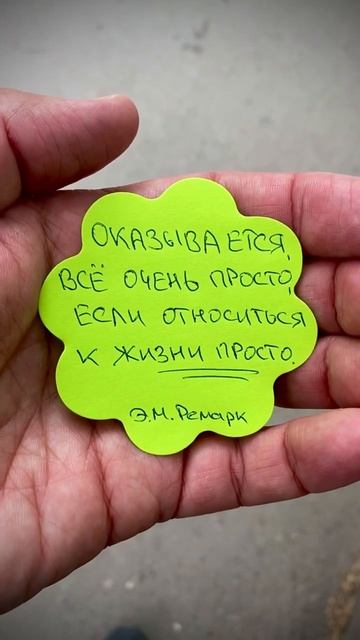 ОКАЗЫВАЕТСЯ,
ВСЁ ОЧЕНЬ ПРОСТО,
ЕСЛИ ОТНОСИТЬСЯ
К ЖИЗНИ ПРОСТО.
Э.М. Ремарк